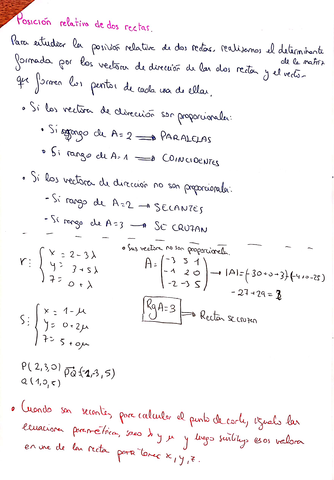 Posición relativa de dos rectas.
Para estudiar la posición relativa de dos rectas, realizamos el determinante
de la matriz
formada por los vectores de dirección de las dos rectas y el vector
que forman los puntos de cada una de ellas.
• Si los vectores de dirección son proporcionales:
• Si rango de A=2 → PARALELAS
• Si rango de A=1 → COINCIDENTES
• Si los vectores de dirección no son proporcionales:
- Si rango de A=2 → SECANTES
- Si rango de A=3 → SE CRUZAN
• Sus vectores no son proporcionales.
r: { x = 2-3λ
y = 3+5λ
z = 0+λ
A = ( -3 5 1
-1 2 0
-2 -3 5 ) → |A| = (-30+0+3)-(-4+0-25)
-27+29 = 2
s: { x = 1-μ
y = 0+2μ
z = 5+0μ
RgA=3 → Rectas SE CRUZAN
P(2,3,0)
Q(1,0,5)
• Cuando son secantes, para calcular el punto de corte, igualo las
ecuaciones paramétricas, saco λ y μ y luego sustituyo esos valores
en una de las rectas para tener x, y, z.